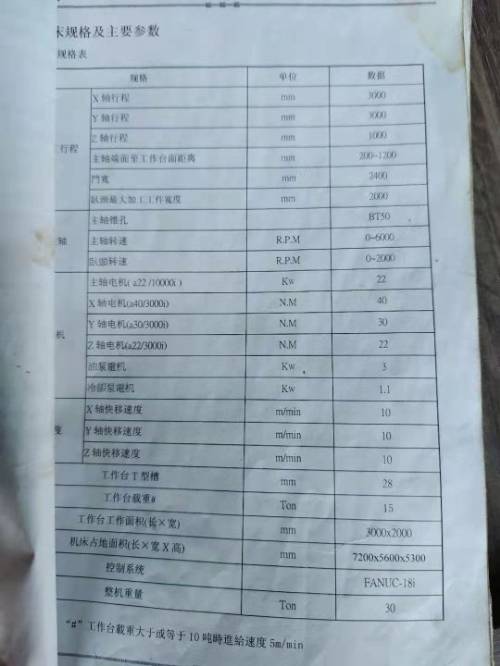 床规格及主要参数
规格表
规格 单位 数据
X 轴行程 mm 3000
Y 轴行程 mm 3000
Z 轴行程 mm 1000
行程 主轴端面至工作台面距离 mm 200~1200
門寬 mm 2400
臥頭最大加工工作寬度 mm 2000
主轴锥孔 BT50
轴 主轴转速 R.P.M 0~6000
臥頭转速 R.P.M 0~2000
主轴电机( a22 /10000i ) Kw 22
X 轴电机(a40/3000i) N.M 40
机 Y 轴电机(a30/3000i) N.M 30
Z 轴电机(a22/3000i) N.M 22
油泵電机 Kw 3
冷卻泵電机 Kw 1.1
X 轴快移速度 m/min 10
度 Y 轴快移速度 m/min 10
Z 轴快移速度 m/min 10
工作台 T 型槽 mm 28
工作台載重# Ton 15
工作台工作面积(长×宽) mm 3000x2000
机床占地面积(长×宽X高) mm 7200x5600x5300
控制系统 FANUC-18i
整机重量 Ton 30
"#"工作台載重大于或等于 10 吨時進給速度 5m/min